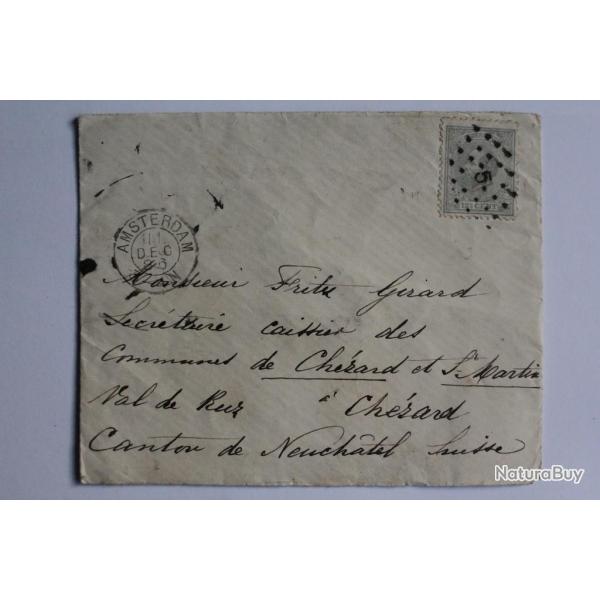 5
CENT
AMSTERDAM
DEC
Monsieur Fritz Girard
Secrétairé caissier des
Communes de Chézard et St Martin
Val de Ruz à Chézard
Canton de Neuchâtel Suisse
NaturaBuy